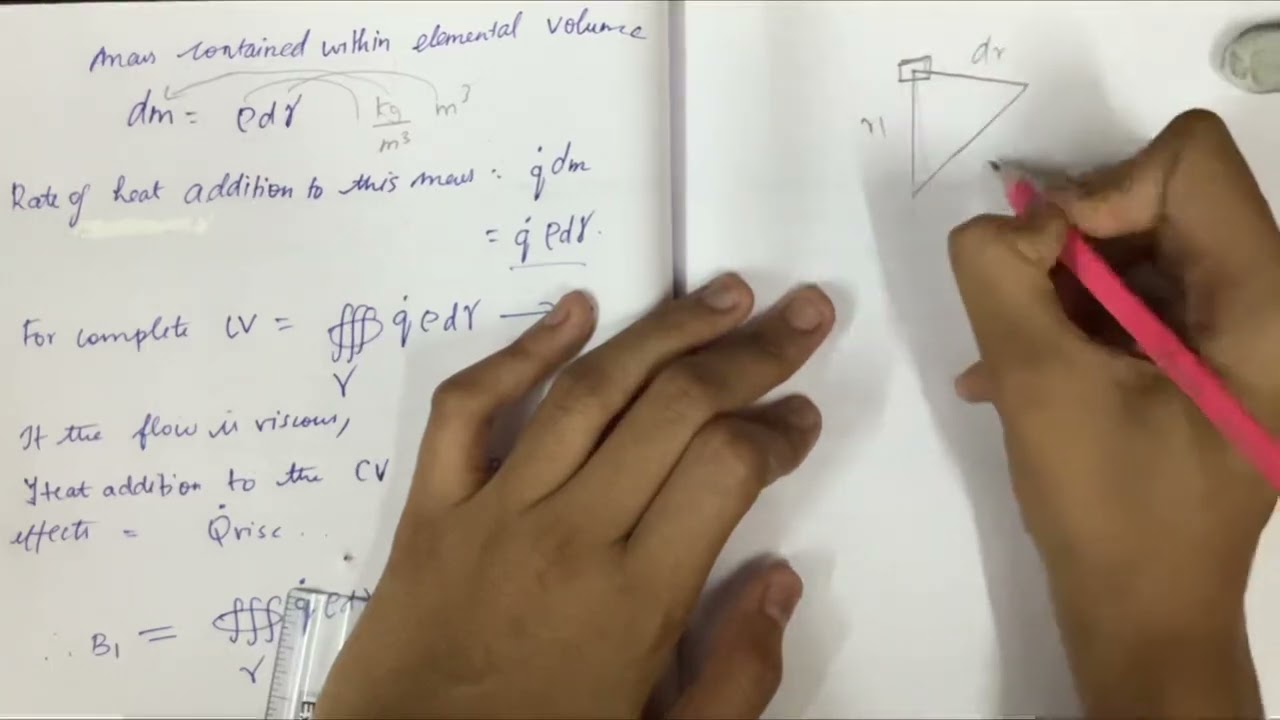 Mass contained within elemental volume
dm = ρdγ kg/m³ m³
Rate of heat addition to this mass : q̇ dm
= q̇ ρdγ.
For complete CV = ∰ q̇ρdγ →
γ
If the flow is viscous,
Heat addition to the CV
effects = Q̇visc ..
∴ B₁ = ∰ q̇ ρd
γ
dr
r1